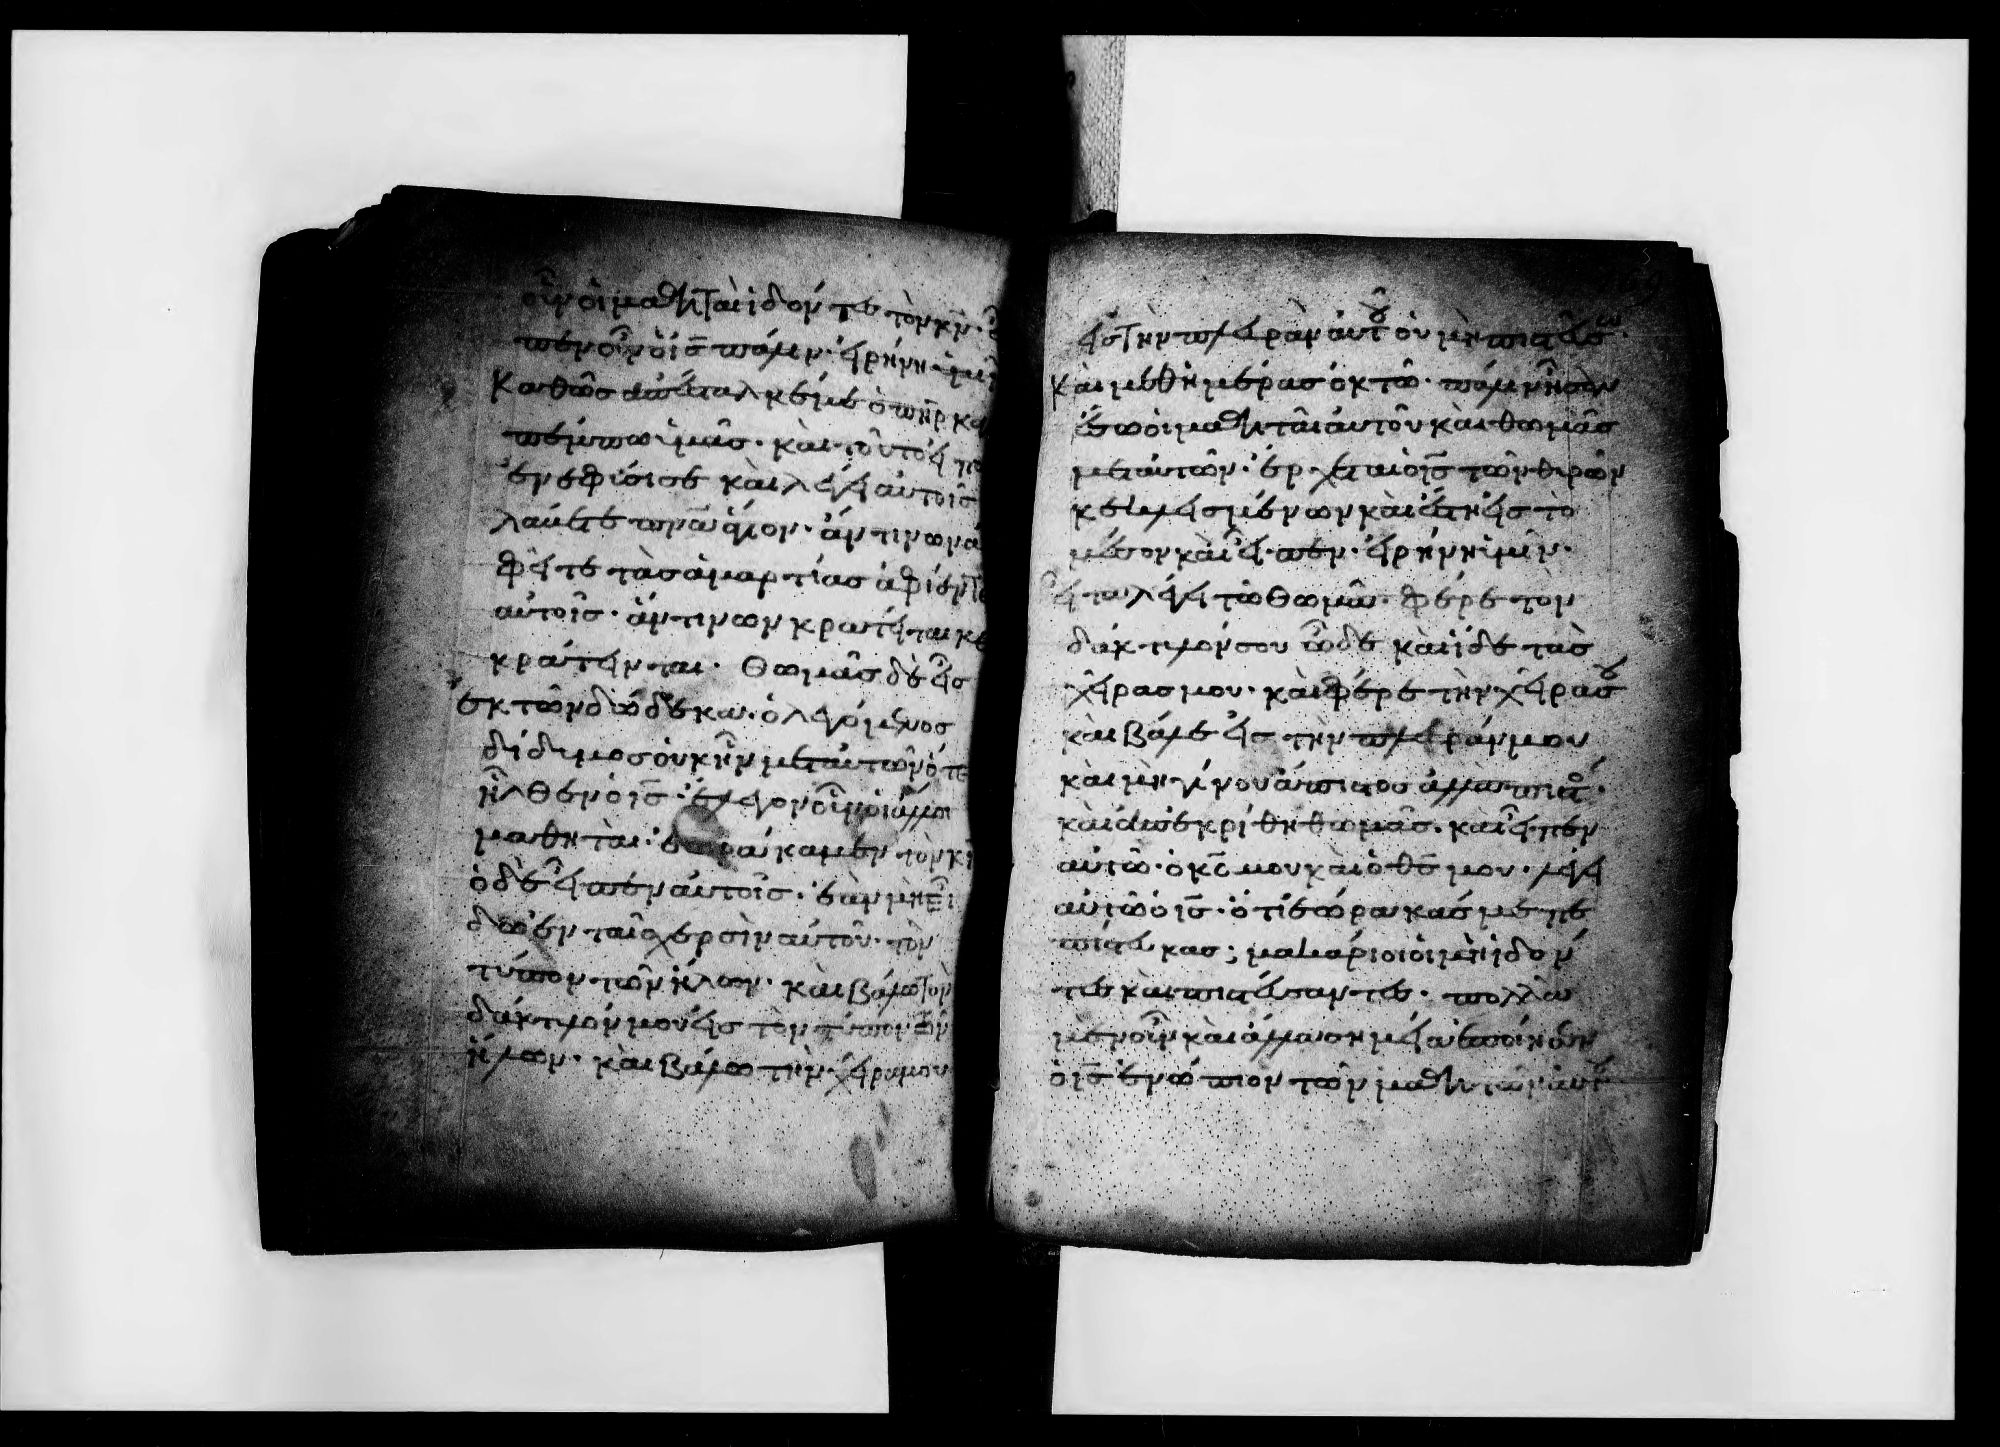 οὖν οἱ μαθηταὶ ἰδόντες τὸν κν·
πεν οὖν ὁ ις πάλιν· εἰρήνη ὑμῖν
Καθὼς ἀπέσταλκέ με ὁ πηρ κα
πέμπω ὑμᾶς· καὶ τοῦτο εἰπὼ
ἐνεφύσισε καὶ λέγει αὐτοῖς
λάβετε πνα ἅγιον· ἄν τινων ἀ
φεῖτε τὰς ἁμαρτίας ἀφίενται
αὐτοῖς· ἄν τινων κρατεῖται κε
κράτεινται· Θωμᾶς δὲ εἷς
ἐκ τῶν δώδεκα· ὁ λεγόμενος
δίδυμος οὐκ ἦν μετ αὐτῶν ὅτε
ἦλθεν ὁ ις· ἔλεγον οὖν οἱ ἄλλοι
μαθηταί· ἑωράκαμεν τὸν κν
ὁ δὲ εἶπεν αὐτοῖς· ἐὰν μὴ εἴ
δω ἐν ταῖς χερσὶν αὐτοῦ· τὸν
τύπον τῶν ἥλων· καὶ βάλω τὸν
δάκτυλόν μου εἰς τὸν τύπον τῶν
ἥλων· καὶ βάλω τὴν χεῖρα μου
εἰς τὴν πλευρὰν αὐτοῦ οὐ μὴ πιστεύσω·
Καὶ μεθ ἡμέρας ὀκτὼ· πάλιν ἦσαν
ἔσω οἱ μαθηταὶ αὐτοῦ καὶ θωμᾶς
μετ αὐτῶν· ἔρχεται ὁ ις τῶν θυρῶν
κεκλεισμένων καὶ ἔστη εἰς τὸ
μέσον καὶ εἶπεν· εἰρήνη ὑμῖν·
εἶτα λέγει τῶ Θωμᾶ· φέρε τὸν
δάκτυλόν σου ὧδε καὶ ἴδε τὰς
χεῖρας μου· καὶ φέρε τὴν χεῖρα σου
καὶ βάλε εἰς τὴν πλευράν μου
καὶ μὴ γίνου ἄπιστος ἀλλὰ πιστός·
καὶ ἀπεκρίθη θωμᾶς· καὶ εἶπεν
αὐτῶ· ὁ κς μου καὶ ὁ θς μου· λέγει
αὐτῶ ὁ ις· ὅτι ἑώρακάς με πε
πίστευκας; μακάριοι οἱ μὴ ἰδόν
τες καὶ πιστεύσαντες· πολλὰ
μὲν οὖν καὶ ἄλλα σημεῖα ἐποίησεν
ὁ ις ἐνώπιον τῶν μαθητῶν αὐτοῦ·